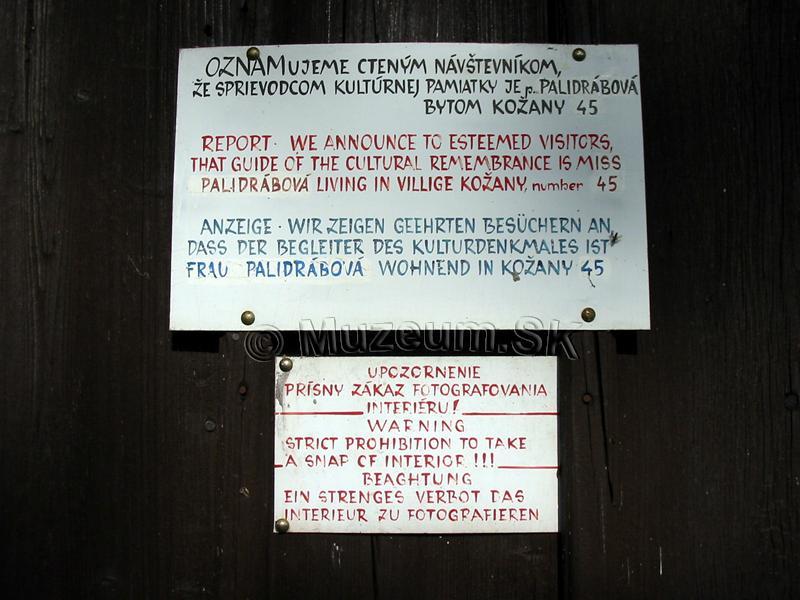 OZNAMUJEME CTENÝM NÁVŠTEVNÍKOM,
ŽE SPRIEVODCOM KULTÚRNEJ PAMIATKY JE p. PALIDRÁBOVÁ
BYTOM KOŽANY 45
REPORT · WE ANNOUNCE TO ESTEEMED VISITORS,
THAT GUIDE OF THE CULTURAL REMEMBRANCE IS MISS
PALIDRÁBOVÁ LIVING IN VILLIGE KOŽANY, number 45
ANZEIGE · WIR ZEIGEN GEEHRTEN BESÜCHERN AN,
DASS DER BEGLEITER DES KULTURDENKMALES IST
FRAU PALIDRÁBOVÁ WOHNEND IN KOŽANY 45
© Muzeum.SK
UPOZORNENIE
PRÍSNY ZÁKAZ FOTOGRAFOVANIA
INTERIÉRU!
WARNING
STRICT PROHIBITION TO TAKE
A SNAP OF INTERIOR !!!
BEAGHTUNG
EIN STRENGES VERBOT DAS
INTERIEUR ZU FOTOGRAFIEREN